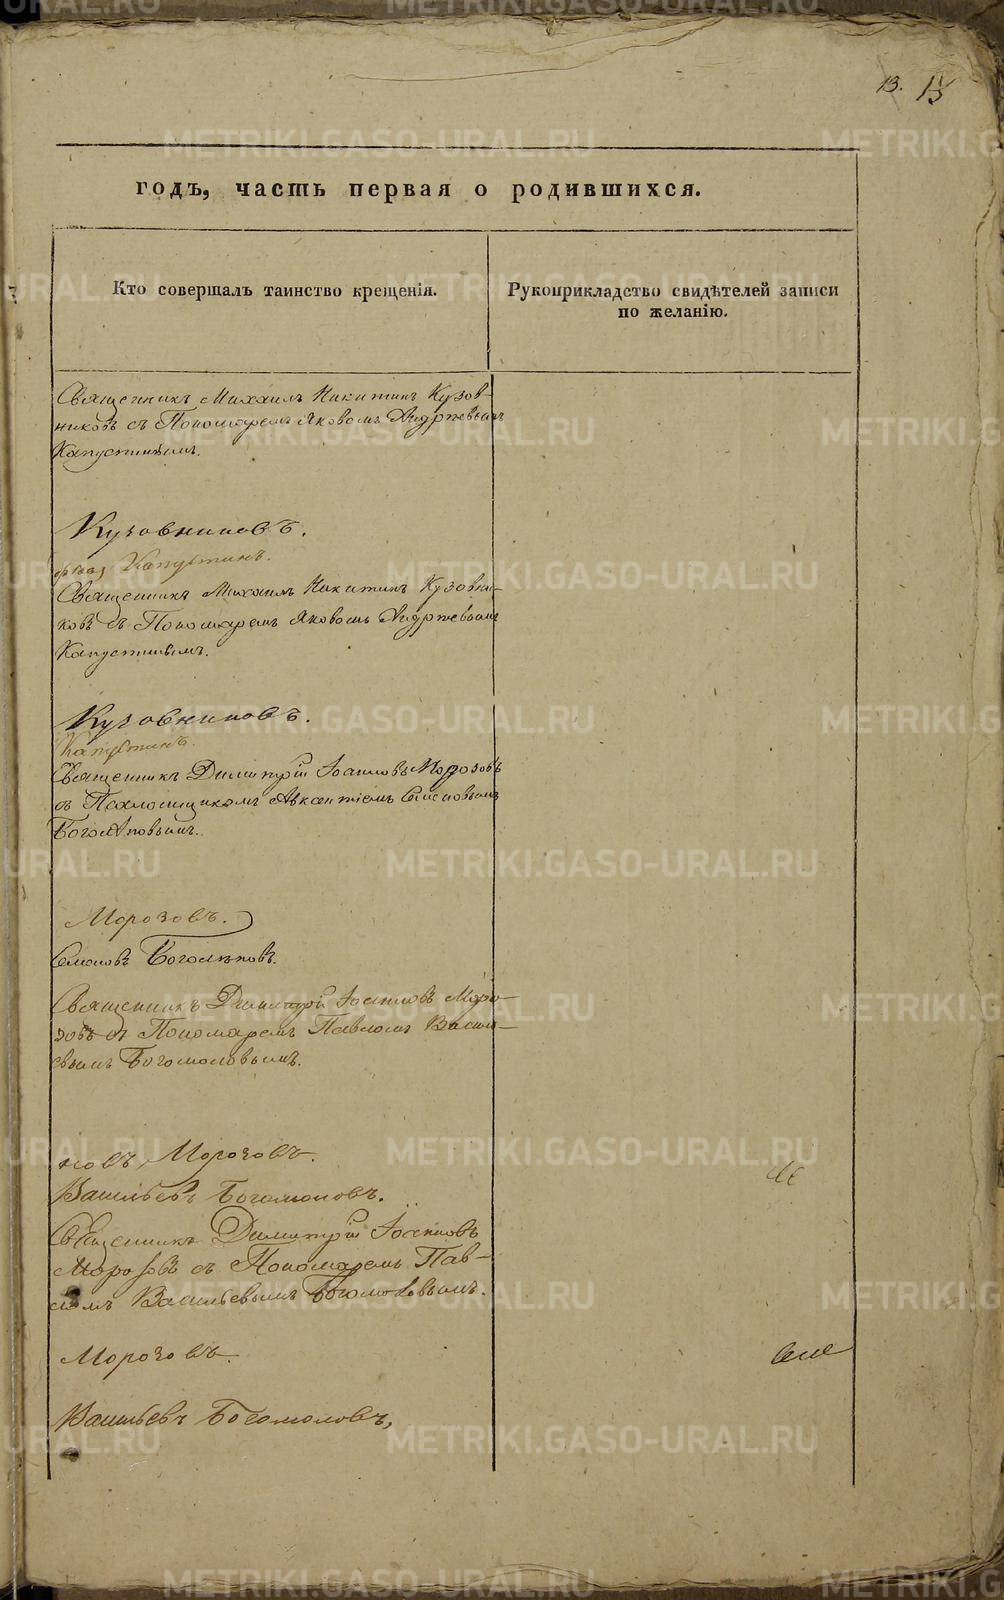 13. 13
годъ, часть первая о родившихся.
Кто совершалъ таинство крещенія.
Рукоприкладство свидѣтелей записи
по желанію.
Священникъ Михаилъ Никитинъ Кузов-
никовъ съ Пономаремъ Яковомъ Андреевымъ
Капустинымъ.
Кузовниковъ.
Капустинъ.
Священникъ Михаилъ Никитинъ Кузовни-
ковъ съ Пономаремъ Яковомъ Андреевымъ
Капустинымъ.
Кузовниковъ.
Капустинъ.
Священникъ Димитрій Іоанновъ Морозовъ
съ Псаломщикомъ Авксентіемъ
Боголѣповымъ.
Морозовъ.
Боголѣповъ.
Священникъ Димитрій Іоанновъ Моро-
зовъ съ Пономаремъ Павломъ Василь-
евымъ Богомоловымъ.
новъ, Морозовъ.
Васильевъ Богомоловъ.
Священникъ Димитрій Іоанновъ
Морозовъ съ Пономаремъ Пав-
ломъ Васильевымъ Богомоловымъ.
Морозовъ.
Васильевъ Богомоловъ,
METRIKI.GASO-URAL.RU